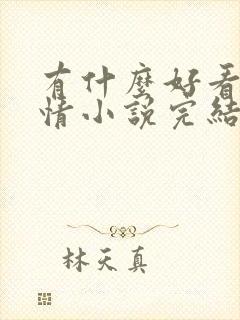 有什麼好看
情小說完結
林天真